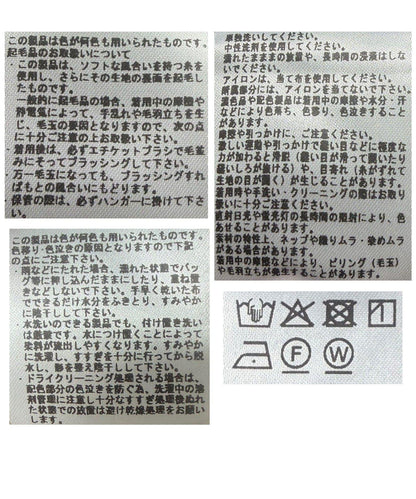 この製品は色が何色も用いられたものです。
起毛品のお取扱いについて
・この製品は、ソフトな風合いを持つ糸を
使用し、さらにその生地の裏面を起毛し
たものです。
一般的に起毛品の場合、着用中の摩擦や
静電気によって、手乱れや毛羽立ちを生
じ、毛玉の要因となりますので、次の点
に十分ご注意の上お取扱い下さい。
・着用後は、必ずエチケットブラシで毛並
みにそってブラッシングして下さい。
・万一毛玉になっても、ブラッシングすれ
ばもとの風合いにもどります。
保管の際は、必ずハンガーに掛けて下さ
い。
この製品は色が何色も用いられたものです。
色移り・色泣きの原因となりますので下記
の点にご注意下さい。
・雨などにたれた場合、濡れた状態でバッグ
等に押し込んだままにしたり、重ね置
きなどしないで下さい。早く乾いた布
でできるだけ水分をふきとり、すみやか
に陰干しして下さい。
・水洗いのできる製品でも、付け置き洗い
は厳禁です。水につけ置くことによって
染料が流出しやすくなります。すみやか
に洗濯し、すすぎを十分に行ってから脱
水し、形を整え陰干しして下さい。
・ドライクリーニング処理される場合は、
配色部分の色泣きを防ぐ為、洗濯中の溶
剤管理に注意し十分なすすぎ処理後ぬれ
た状態での放置は避け乾燥処理をお願い
します。
単独洗いしてください。
中性洗剤を使用してください。
濡れたままでの放置や、長時間の浸漬はしな
いでください。
アイロンは、当て布を使用してください。
附属部分には、アイロンを当てないで下さい。
濃色品や配色製品は着用中の摩擦や水分・汗
などにより色落ち、色移り、色泣きすること
があります。
摩擦や引っかけに、ご注意ください。
激しい運動や引っかけで縫い目などに極度な
力が加わると滑脱（縫い目が滑って開いたり
縫いしろが抜ける）や、目寄れ（糸がずれて
生地の目が開く）が生じることがあります。
着用時や手洗い・クリーニングの際などは
ご注意ください。
直射日光や蛍光灯の長時間の照射により、色
あせすることがあります。
素材の特性上、ネップや織りムラ・染めムラ
がある場合があります。
着用中の摩擦などにより、ピリング（毛玉）
や毛羽立ちが発生することがあります。
1
F W